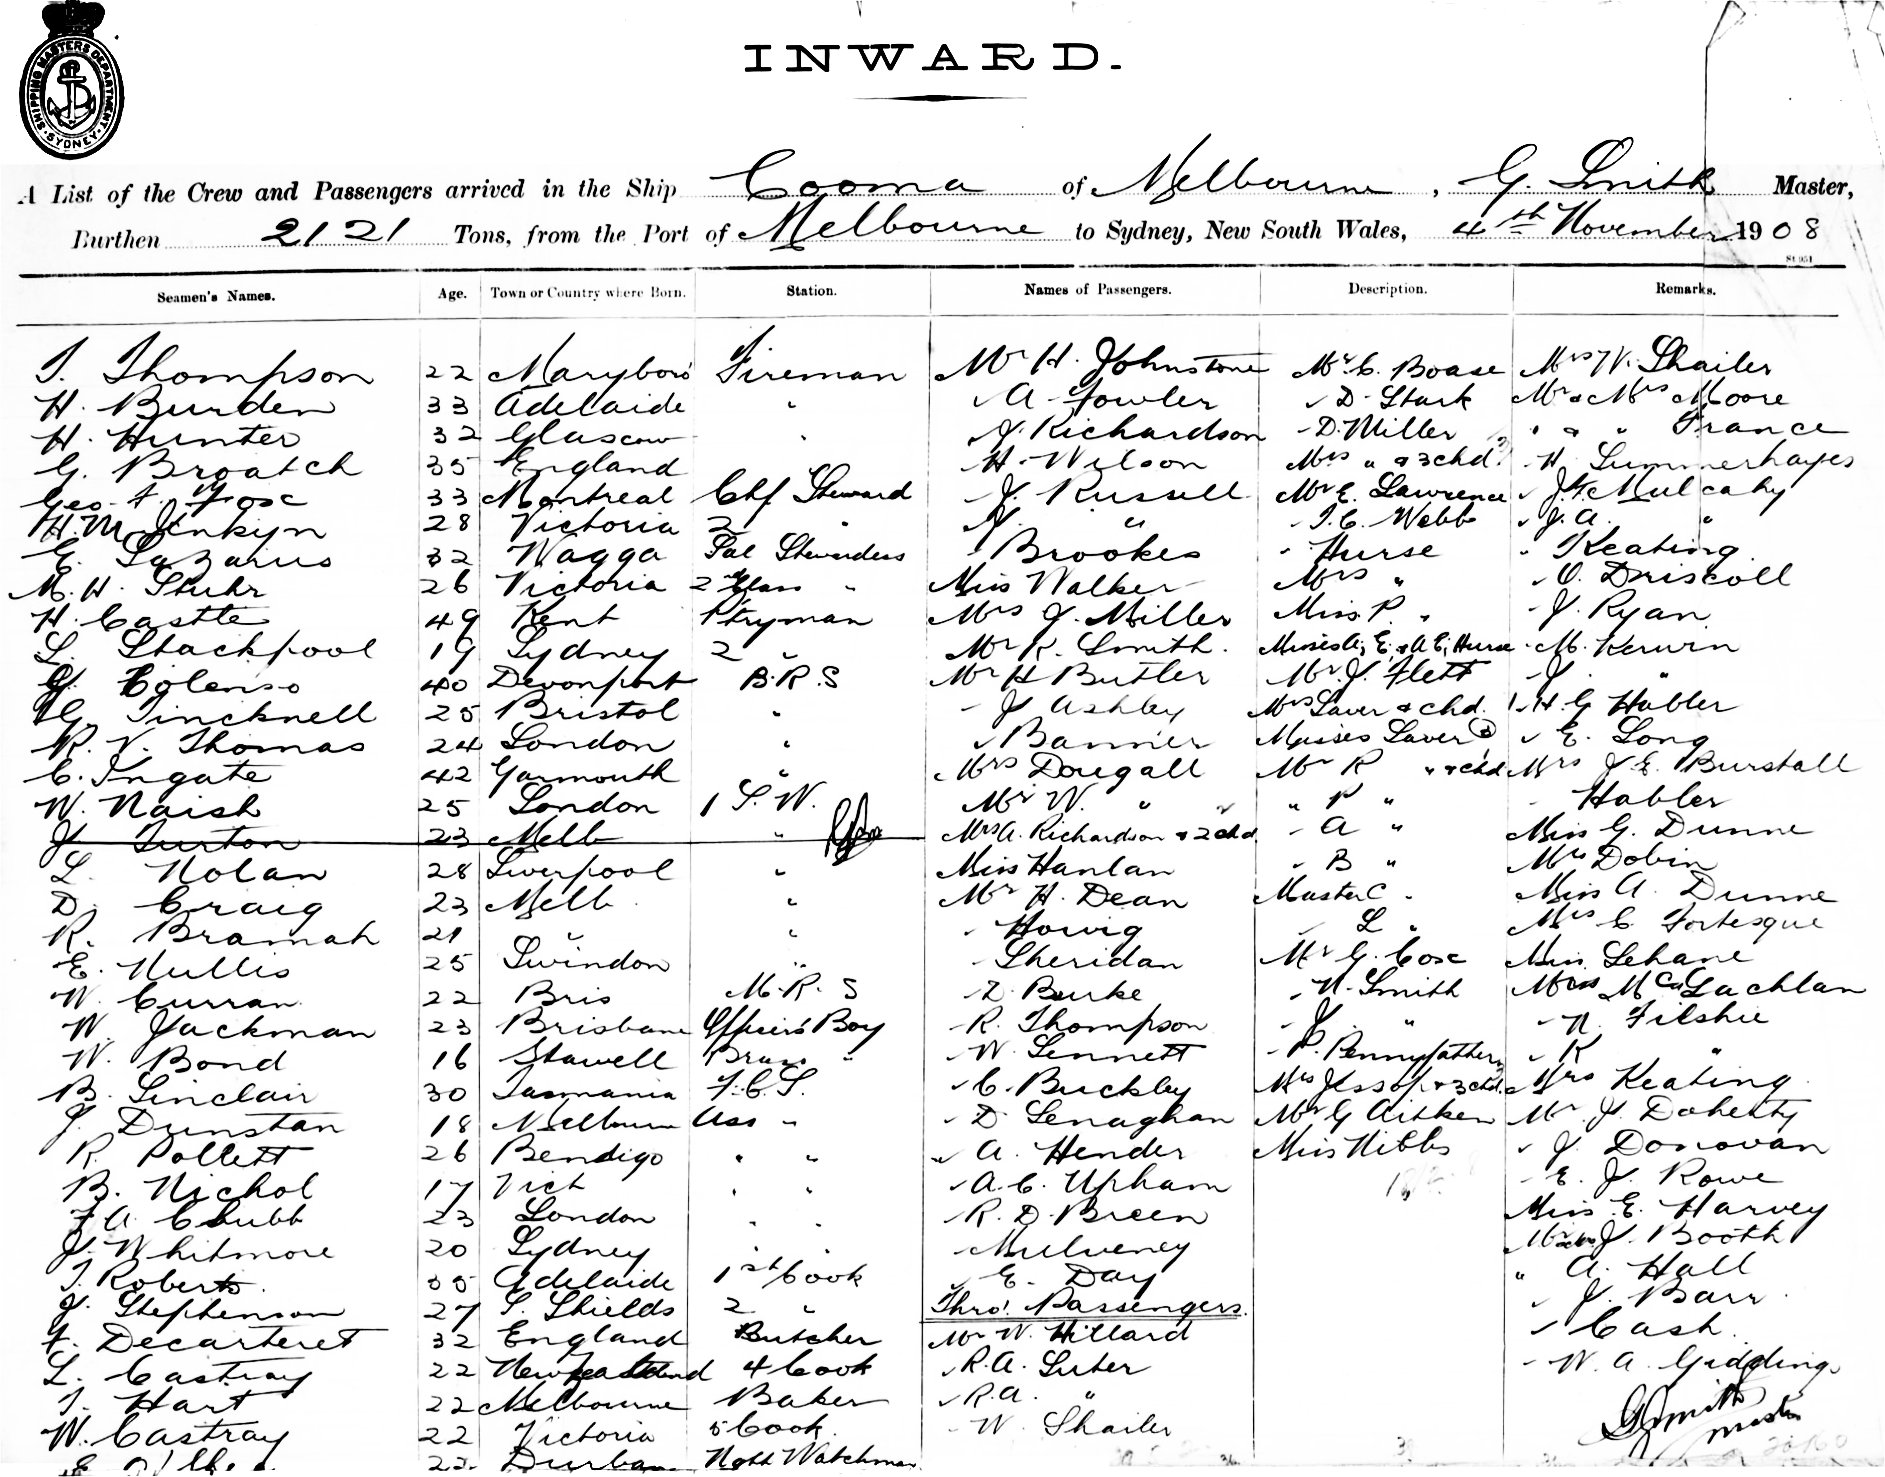 SHIPPING MASTERS DEPARTMENT
SYDNEY
INWARD.
A List of the Crew and Passengers arrived in the Ship Cooma of Melbourne, G. Smith Master,
Burthen 2121 Tons, from the Port of Melbourne to Sydney, New South Wales, 4th November 1908
St 951
Seamen's Names. Age. Town or Country where Born. Station. Names of Passengers. Description. Remarks.
T. Thompson 22 Maryboro' Fireman Mr H. Johnstone Mr C. Boase Mrs W. Shailer
H. Burden 33 Adelaide " " A Fowler " D. Stark Mr & Mrs Moore
H. Hunter 32 Glascow " J. Richardson " D. Miller " & " France
G. Broatch 35 England H. Wilson Mrs " & 3 chd. " H. Summerhayes
Geo. F. Fose 33 Montreal Chf Steward J. Russell Mr E. Lawrence " J. F. Mulcahy
H. M. Jinkyn 28 Victoria 2 " J. " " T. C. Webb " J. A. "
E. Lazarus 32 Wagga Sal Stewardess " Brookes " Hurse " Keating
M. H. Stuhr 26 Victoria 2 Class " Miss Walker Mrs " " O. Driscoll
H. Castle 49 Kent Ptryman Mrs J. Miller Miss P. " " J. Ryan
L. Stackpool 19 Sydney 2 " Mr K. Smith. Misses A, E, & A E, Hurse " M. Kerwin
G. Colenso 40 Devonport B.R.S Mr H Butler Mr J. Flett " J. "
G. Tincknell 25 Bristol " " J Ashby Mrs Laver & chd. " H. G Habler
R. V. Thomas 24 London " " Banner Misses Laver " E. Long
C. Ingate 42 Yarmouth " Mrs Dougall Mr R " & chd Mrs J. E. Burstall
W. Naish 25 London 1 S. W. Mr W. " " P " " Habler
J Turton 23 Melb " Mrs A. Richardson & 2 chd. " A " Miss G. Dunne
L. Nolan 28 Liverpool " Miss Hanlan " B " Mrs Dobin
D. Craig 23 Melb " Mr H. Dean Master C " Miss A. Dunne
R. Bramah 21 " " " Howig " L " Mrs C Fortesque
E. Nullis 25 Swindon " Sheridan Mr G. Cose Miss Lehane
W. Curran 22 Bris M.R.S " D. Burke " N. Smith McLachlan
W. Jackman 23 Brisbane Officers' Boy " R. Thompson " J. " " N. Filshie
W. Bond 16 Stawell Brass " " W. Sennett " P. Pennyfather " R "
B. Sinclair 30 Tasmania F.C.S. " C. Buckley Mrs Jessop & 3 chd. Mrs Keating
J. Dunstan 18 Melbourne Ass " " D Lenaghan Mr G Aitken Mr J. Doherty
R. Pollett 26 Bendigo " " " A. Hender Miss Nibbs " J. Donovan
B. Nichol 17 Vict " " " A. C. Upham " E. J. Rowe
F A. Chubb 23 London " " " R. D. Breen Miss E. Harvey
J. Whitmore 20 Sydney " " " Mulveney J. Booth
T. Roberts 35 Adelaide 1st Cook " E. Day " A. Hall
J. Stephenson 27 S. Shields 2 " Thro' Passengers. " J. Barr
F. Decarteret 32 England Butcher Mr W. Hillard " Cash.
L. Castray 22 New Zealand 4 Cook " R. A. Suter " W. A. Giddings
T. Hart 22 Melbourne Baker " R. A. "
W. Castray 22 Victoria 5 Cook " W. Shailer
Durban Watchman
G Smith
Master